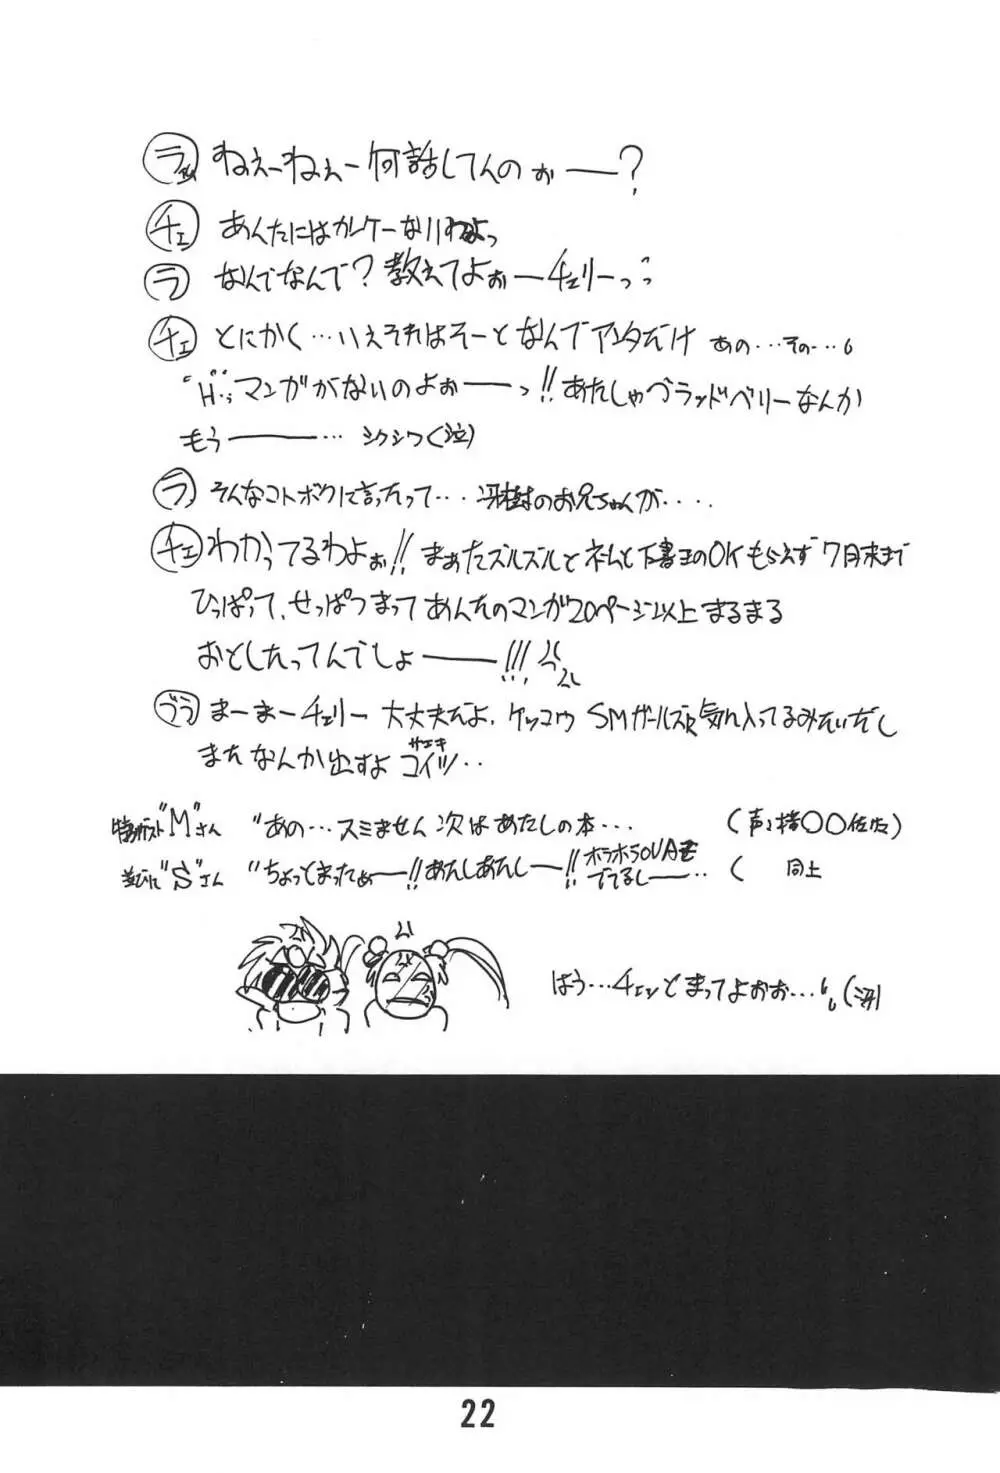 ラ ねえーねえー何話してんのォ――?
チェ あんたにはカンケーないわよっ
ラ なんでなんで?教えてよぉーチェリーっっ
チェ とにかく…いえそれはそーとなんでアンタだけ あの…その…
"H"マンガがないのよぉ――っ!!あたしゃブラッドベリーなんか
もう――… シクシク(泣)
ラ そんなコトボクに言ったって… 冴樹のお兄ちゃんが….
チェ わかってるわよぉ!! まぁたズルズルとネームと下書きのOKもらえず7月末まで
ひっぱって、せっぱつまってあんたのマンガ20ページ以上まるまる
おとしたってんでしょ――!!!
ブラ まーまーチェリー 大丈夫だよ、ケッコウ SMガールズ気に入ってるみたいだし
またなんか出すよ コイツ‥
サエキ
"M"さん "あの…スミません次はあたしの本…
"S"さん "ちょっとまったぁー!!あたしあたしー!! ホラホラOVAも
でてるしー‥ ( 同上
はう…チョッとまってよぉぉ… (冴)
22